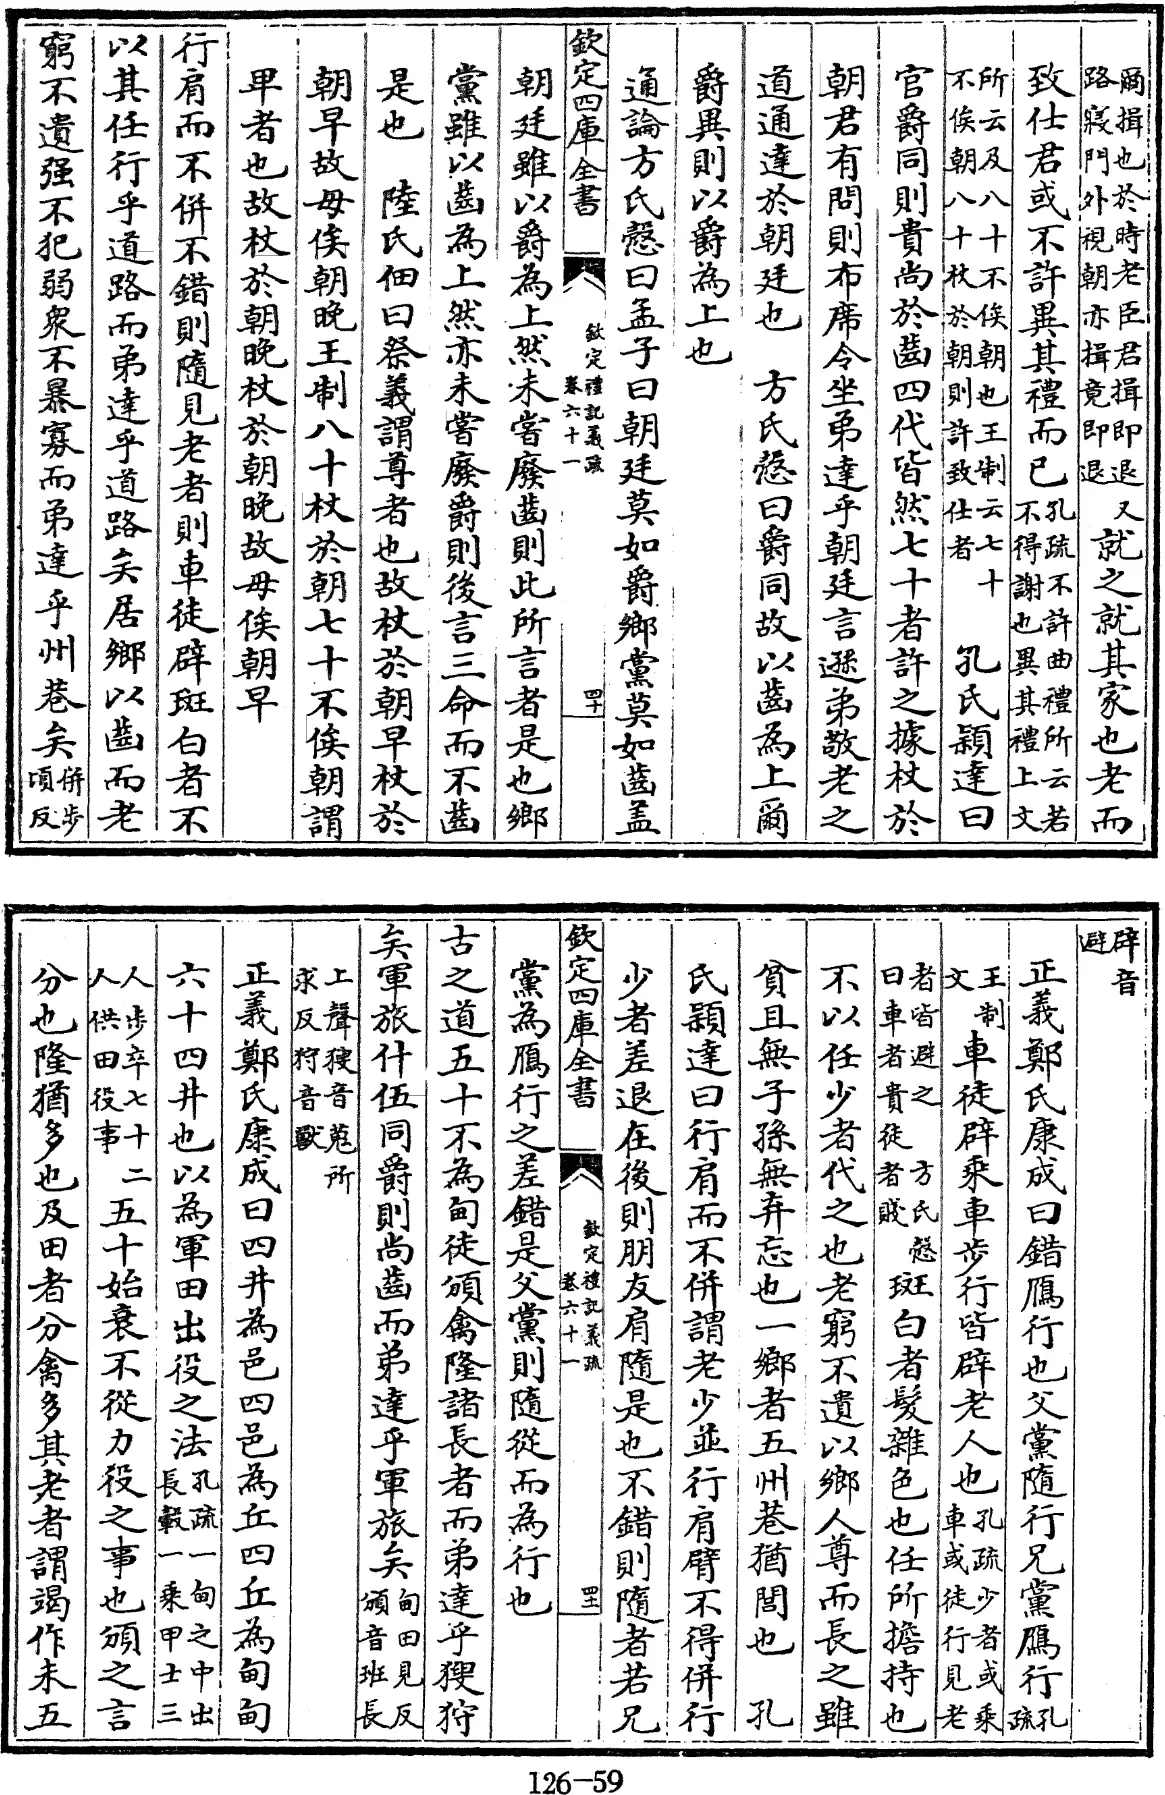 爾揖也於時老臣君揖即退
路寢門外視朝亦揖竟即退
又就之就其家也老而
致仕君或不許異其禮而已
孔疏不許曲禮所云若
不得謝也異其禮上文
所云及八十不俟朝也王制云七十
不俟朝八十杖於朝則許致仕者
孔氏穎達曰
官爵同則貴尚於齒四代皆然七十者許之據杖於
朝君有問則布席令坐弟達乎朝廷言遜弟敬老之
道通達於朝廷也 方氏慤曰爵同故以齒為上爾
爵異則以爵為上也
通論方氏慤曰孟子曰朝廷莫如爵鄉黨莫如齒盖
欽定四庫全書
欽定禮記義疏
卷六十一
四十
朝廷雖以爵為上然未嘗廢齒則此所言者是也鄉
黨雖以齒為上然亦未嘗廢爵則後言三命而不齒
是也 陸氏佃曰祭義謂尊者也故杖於朝早杖於
朝早故毋俟朝晚王制八十杖於朝七十不俟朝謂
卑者也故杖於朝晚杖於朝晚故毋俟朝早
行肩而不併不錯則隨見老者則車徒辟斑白者不
以其任行乎道路而弟達乎道路矣居鄉以齒而老
窮不遺强不犯弱衆不暴寡而弟達乎州巷矣
併步
頃反
辟音
避
正義鄭氏康成曰錯鴈行也父黨隨行兄黨鴈行
孔
疏
王制
文
車徒辟乘車步行皆辟老人也
孔疏少者或乘
車或徒行見老
者皆避之 方氏慤
曰車者貴徒者賤
斑白者髮雜色也任所擔持也
不以任少者代之也老窮不遺以鄉人尊而長之雖
貧且無子孫無弃忘也一鄉者五州巷猶閭也 孔
氏穎達曰行肩而不併謂老少並行肩臂不得併行
少者差退在後則朋友肩隨是也不錯則隨者若兄
欽定四庫全書
欽定禮記義疏
卷六十一
四十一
黨為鴈行之差錯是父黨則隨從而為行也
古之道五十不為甸徒頒禽隆諸長者而弟達乎獀狩
矣軍旅什伍同爵則尚齒而弟達乎軍旅矣
甸田見反
頒音班長
上聲獀音蒐所
求反狩音獸
正義鄭氏康成曰四井為邑四邑為丘四丘為甸甸
六十四井也以為軍田出役之法
孔疏一甸之中出
長轂一乘甲士三
人步卒七十二
人供田役事
五十始衰不從力役之事也頒之言
分也隆猶多也及田者分禽多其老者謂竭作未五
126-59